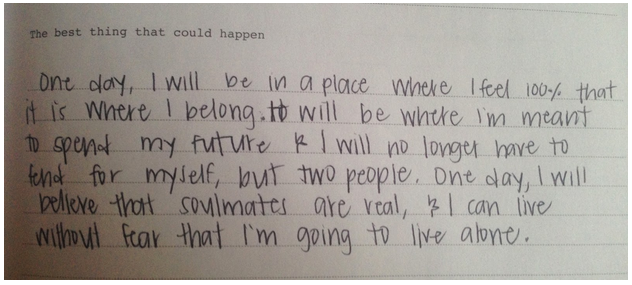 The best thing that could happen
One day, I will be in a place where I feel 100% that
it is where I belong. It will be where i'm meant
to spend my future & I will no longer have to
fend for myself, but two people. One day, I will
believe that soulmates are real, & I can live
without fear that I'm going to live alone.